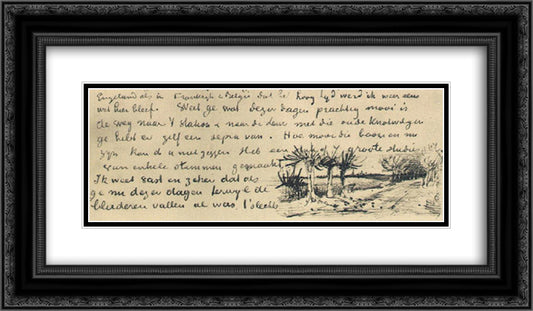 Engeland als in Frankrijk & België dat het hoog tijd werd ik weer een
Weet ge wat dezer dagen prachtig mooi is
de weg naar 't station & naar de donk met die oude knotwilgen
ge hebt er zelf een sepia van. Hoe mooi die boomen nu
zijn kan ik u niet zeggen Heb een groote studie
van enkele stammen gemaakt
Ik weet vast en zeker dat als
ge nu dezer dagen terwijl de
bladeren vallen al was 't slechts